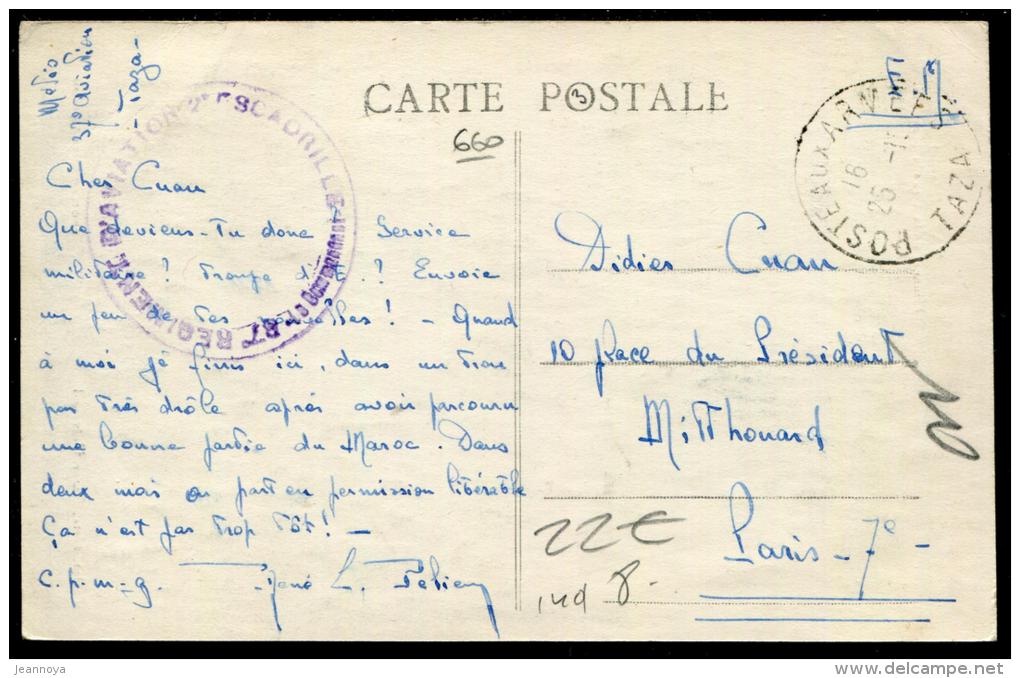 Météo
37e Aviation
- Taza -
CARTE POSTALE
3
660
F M
POSTE AUX ARMEES
TAZA
16
25
REGIMENT D'AVIATION ESCADRILLE
Cher Cuau
Que deviens-tu donc ? Service
militaire ? Troupe d'E.. ? Envoie
un peu de tes nouvelles ! - Quand
à moi je finis ici, dans un trou
pas très drôle après avoir parcouru
une bonne partie du Maroc. Dans
deux mois on part en permission libérable
Ça n'est pas trop tôt ! -
c.p.m.g. René L.
Didier Cuau
10 place du Président
Mitthouard
Paris - 7e -
22€
ind 8.
jeannoya
www.delcampe.net